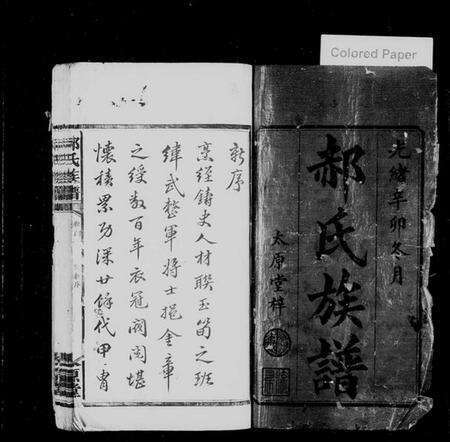 Colored Paper
光緒辛卯冬月
郝氏族譜
太原堂梓
新序
烹經鑄史人材聯玉筍之班
緯武整軍將士挹金章
之綬數百年衣冠閥閱堪
懷積累功深廿餘代甲胄
郝氏族譜